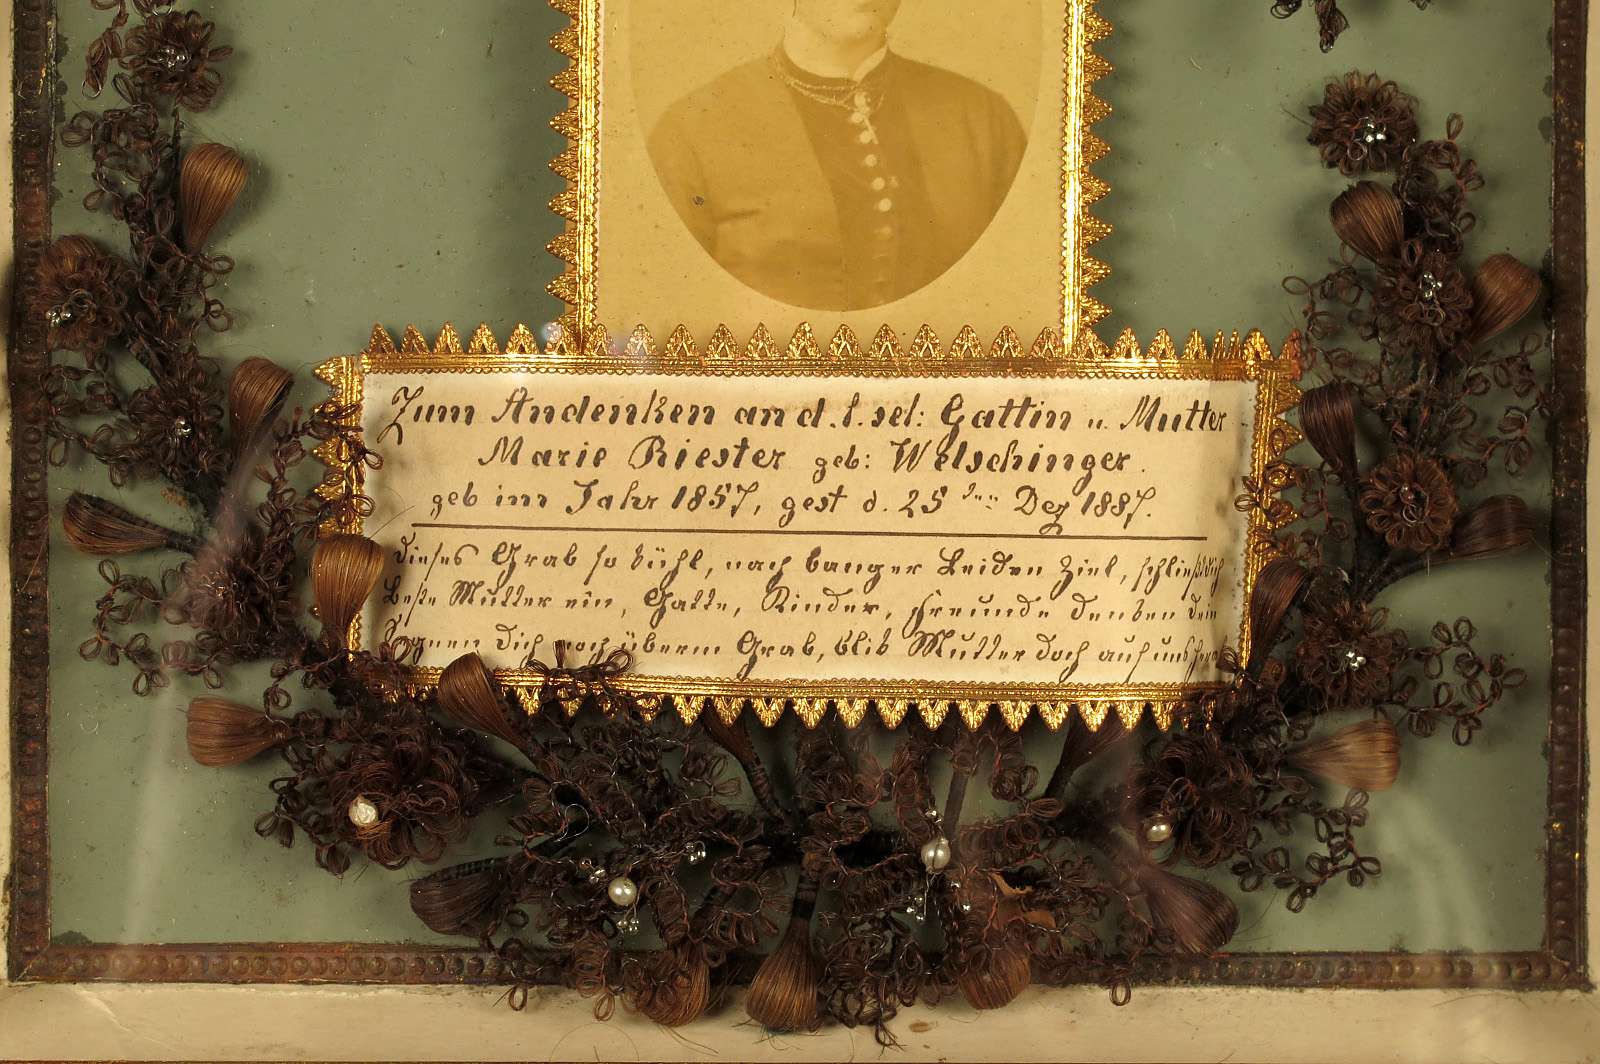 Zum Andenken an d. l. sel: Gattin u. Mutter
Marie Riester geb: Welschinger.
geb im Jahr 1857, gest d. 25 ten Dez 1887.
Dieses Grab so kühl, nach banger Leiden Ziel, schließt dich
Beste Mutter ein, Gatte, Kinder, Freunde denken dein
Segnen dich noch überm Grab, blik Mutter doch auf uns herab